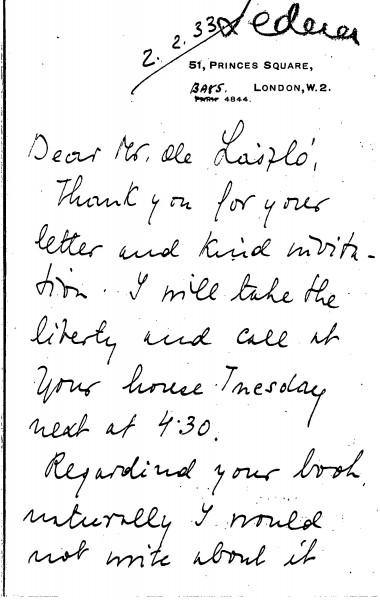 2. 2. 33 Lederer
51, PRINCES SQUARE,
BAYS. LONDON, W.2.
4844.
Dear Mr. de László,
Thank you for your
letter and kind invita-
tion. I will take the
liberty and call at
your house Tuesday
next at 4.30.
Regardind your book,
naturally I would
not write about it